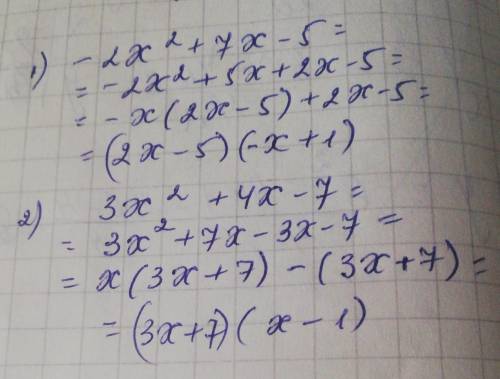 1) -2x² + 7x - 5 =
= -2x² + 5x + 2x - 5 =
= -x(2x - 5) + 2x - 5 =
= (2x - 5)(-x + 1)
2) 3x² + 4x - 7 =
= 3x² + 7x - 3x - 7 =
= x(3x + 7) - (3x + 7) =
= (3x + 7)(x - 1)